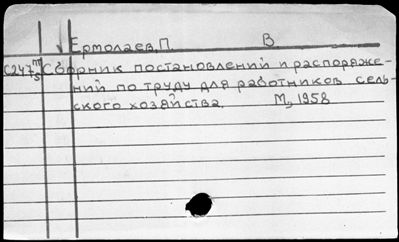 Ермолаев, П. В
С247 m/s Сборник постановлений и распоряже-
ний по труду для работников сель-
ского хозяйства. М., 1958